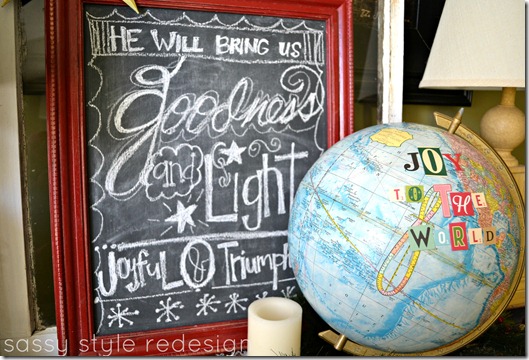 HE WILL BRING US
Goodness
and Light
Joyful LO & Triumph
JOY
TO THE
WORLD
sassy style redesign